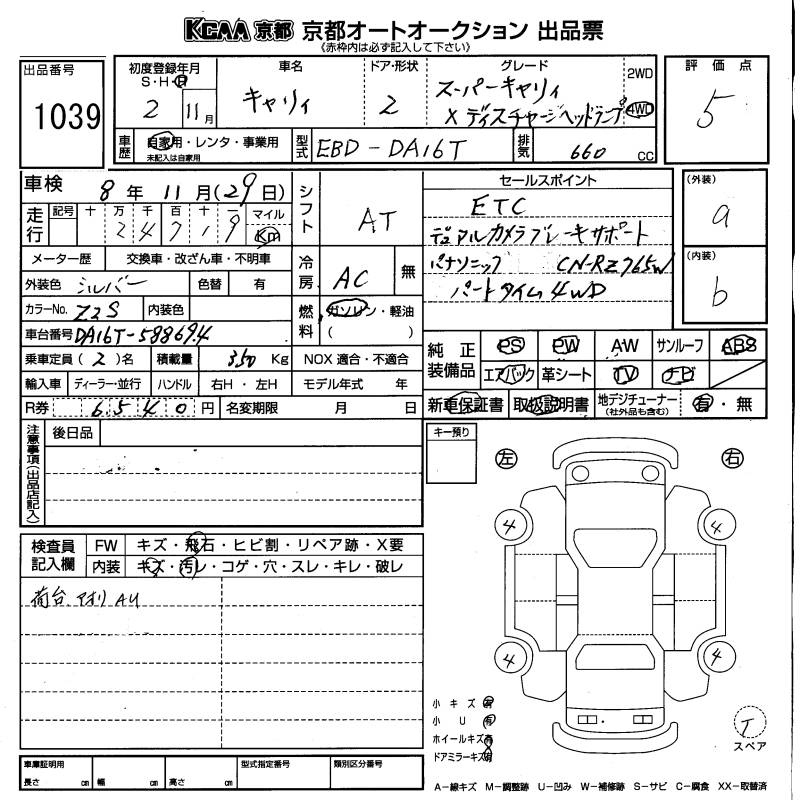 KCAA 京都 京都オートオークション 出品票
《赤枠内は必ず記入して下さい》
出品番号
1039
初度登録年月
S・H・R
2 11月
車名
キャリィ
ドア・形状
2
グレード
スーパーキャリィ
X ディスチャージヘッドランプ
2WD
4WD
評価点
5
車歴
自家用・レンタ・事業用
未記入は自家用
型式
EBD-DA16T
排気
660 CC
車検
8年11月(29日)
走行
記号 十 万 千 百 十 一 マイル
2 4 7 1 9 Km
メーター歴 交換車・改ざん車・不明車
外装色 シルバー 色替 有
カラーNo. Z2S 内装色
車台番号 DA16T-588694
乗車定員 (2)名 積載量 350 Kg
輸入車 ディーラー・並行 ハンドル 右H・左H
R券 6,540円 名変期限 月 日
シフト
AT
冷房
AC 無
燃料
ガソリン・軽油
( )
NOX 適合・不適合
モデル年式 年
セールスポイント
ETC
デュアルカメラブレーキサポート
パナソニック CN-RZ765W
パートタイム4WD
(外装)
a
(内装)
b
純正装備品
PS PW AW サンルーフ ABS
エアバック 革シート TV ナビ
新車保証書 取扱説明書 地デジチューナー
(社外品も含む)
有・無
注意事項(出品店記入)
後日品
キー預り
左 右
検査員記入欄
FW キズ・飛石・ヒビ割・リペア跡・X要
内装 キズ・汚レ・コゲ・穴・スレ・キレ・破レ
荷台 アオリ AU
4 4
4 4
小キズ 有
小U 有
ホイールキズ 有
ドアミラーキズ 有
T
スペア
車庫証明用
長さ cm 幅 cm 高さ cm
型式指定番号
類別区分番号
A-線キズ M-調整跡 U-凹み W-補修跡 S-サビ C-腐食 XX-取替済